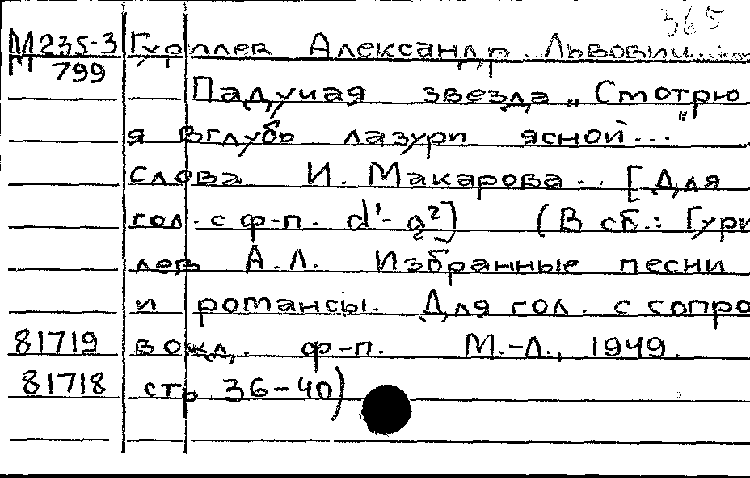 365
М235-3 Гурилев Александр Львович
М 799
Падучая звезда „Смотрю
я вглубь лазури ясной...“
Слова И. Макарова. [Для
гол. с ф-п. d¹-a²] (В сб.: Гури
лев А.Л. Избранные песни
и романсы. Для гол. с сопро
81719 вожд. ф-п. М.-Л., 1949.
81718 стр. 36-40)